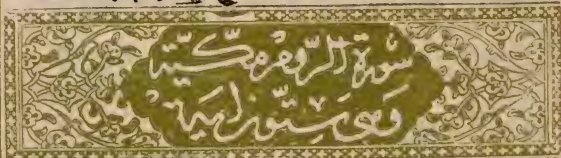 سورة الروم مكية
وهى ستون اية